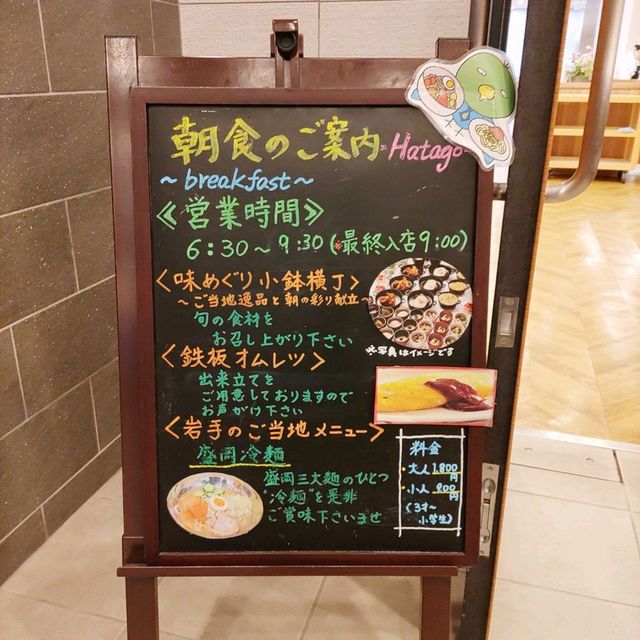 朝食のご案内 Hatago
～breakfast～
≪営業時間≫
6:30～9:30(※最終入店9:00)
<味めぐり小鉢横丁>
～ご当地逸品と朝の彩り献立～
旬の食材を
お召し上がり下さい
※写真はイメージです
<鉄板オムレツ>
出来立てを
ご用意しておりますので
お声がけ下さい
<岩手のご当地メニュー>
盛岡冷麺
盛岡三大麺のひとつ
"冷麺"を是非
ご賞味下さいませ
料金
・大人1,800円
・小人 900円
(3才～
小学生)